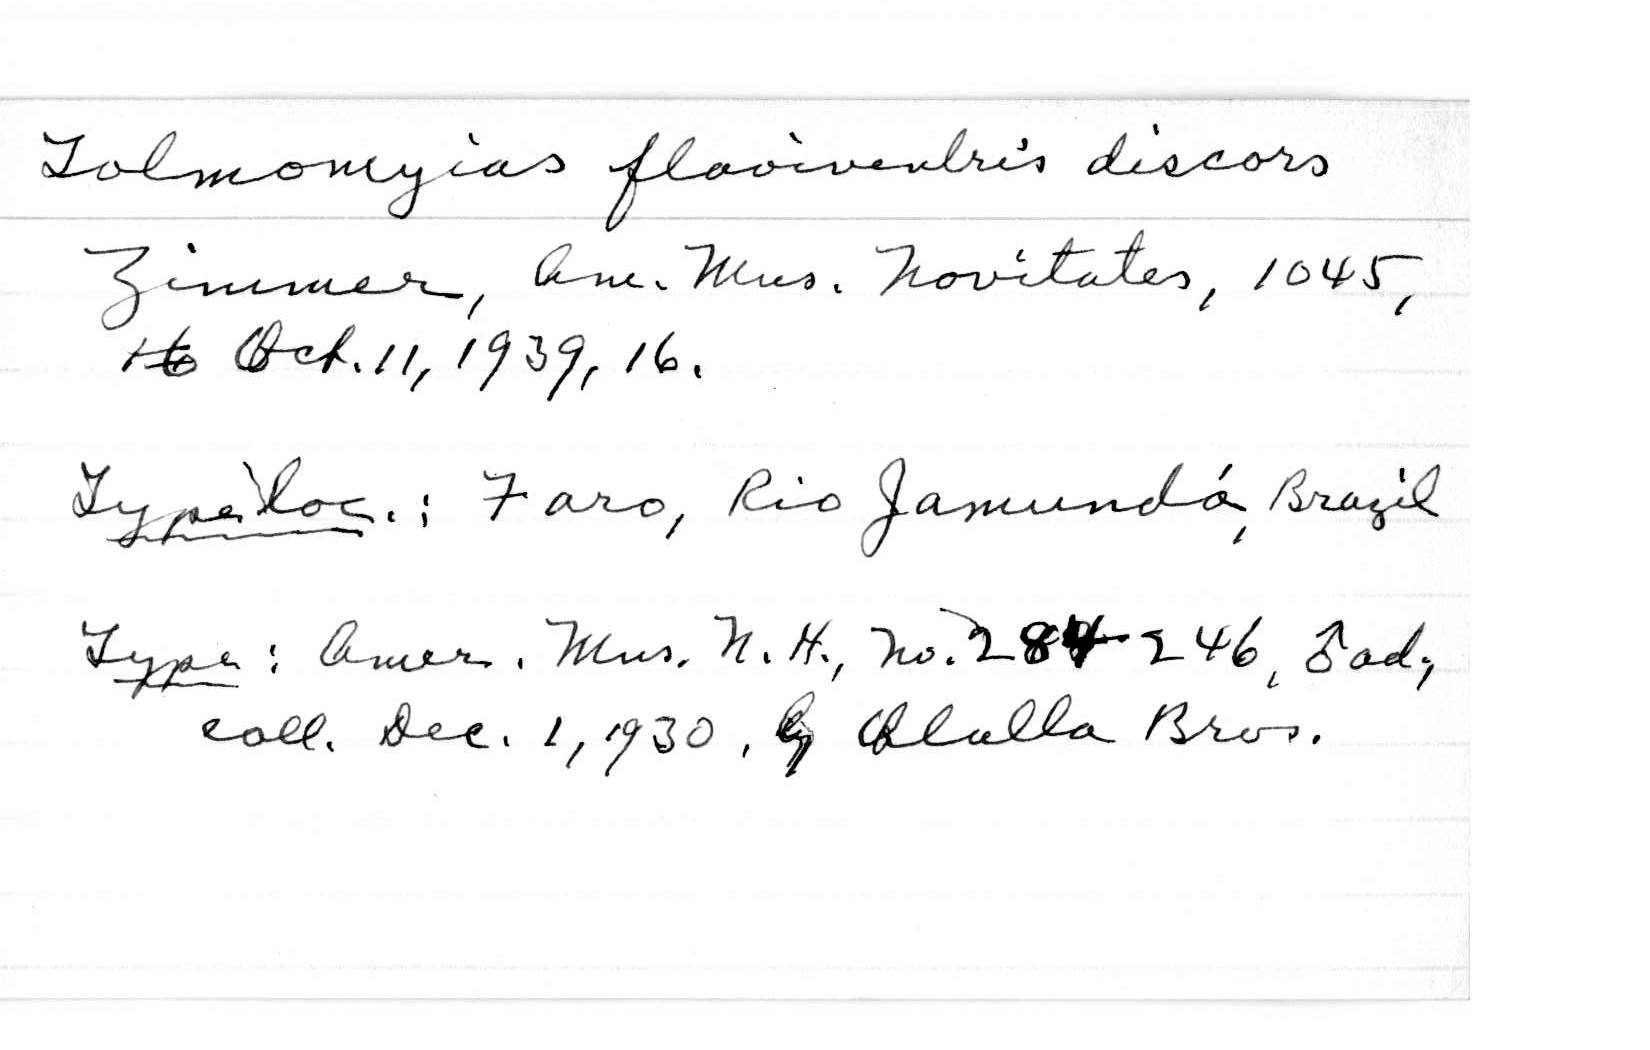 Tolmomyias flaviventris discors
Zimmer, Am. Mus. Novitates, 1045,
Oct. 11, 1939, 16.
Type loc.: Faro, Rio Jamundá, Brazil
Type: Amer. Mus. N. H., No. 284 246, ♂ ad.,
coll. Dec. 1, 1930, by Olalla Bros.